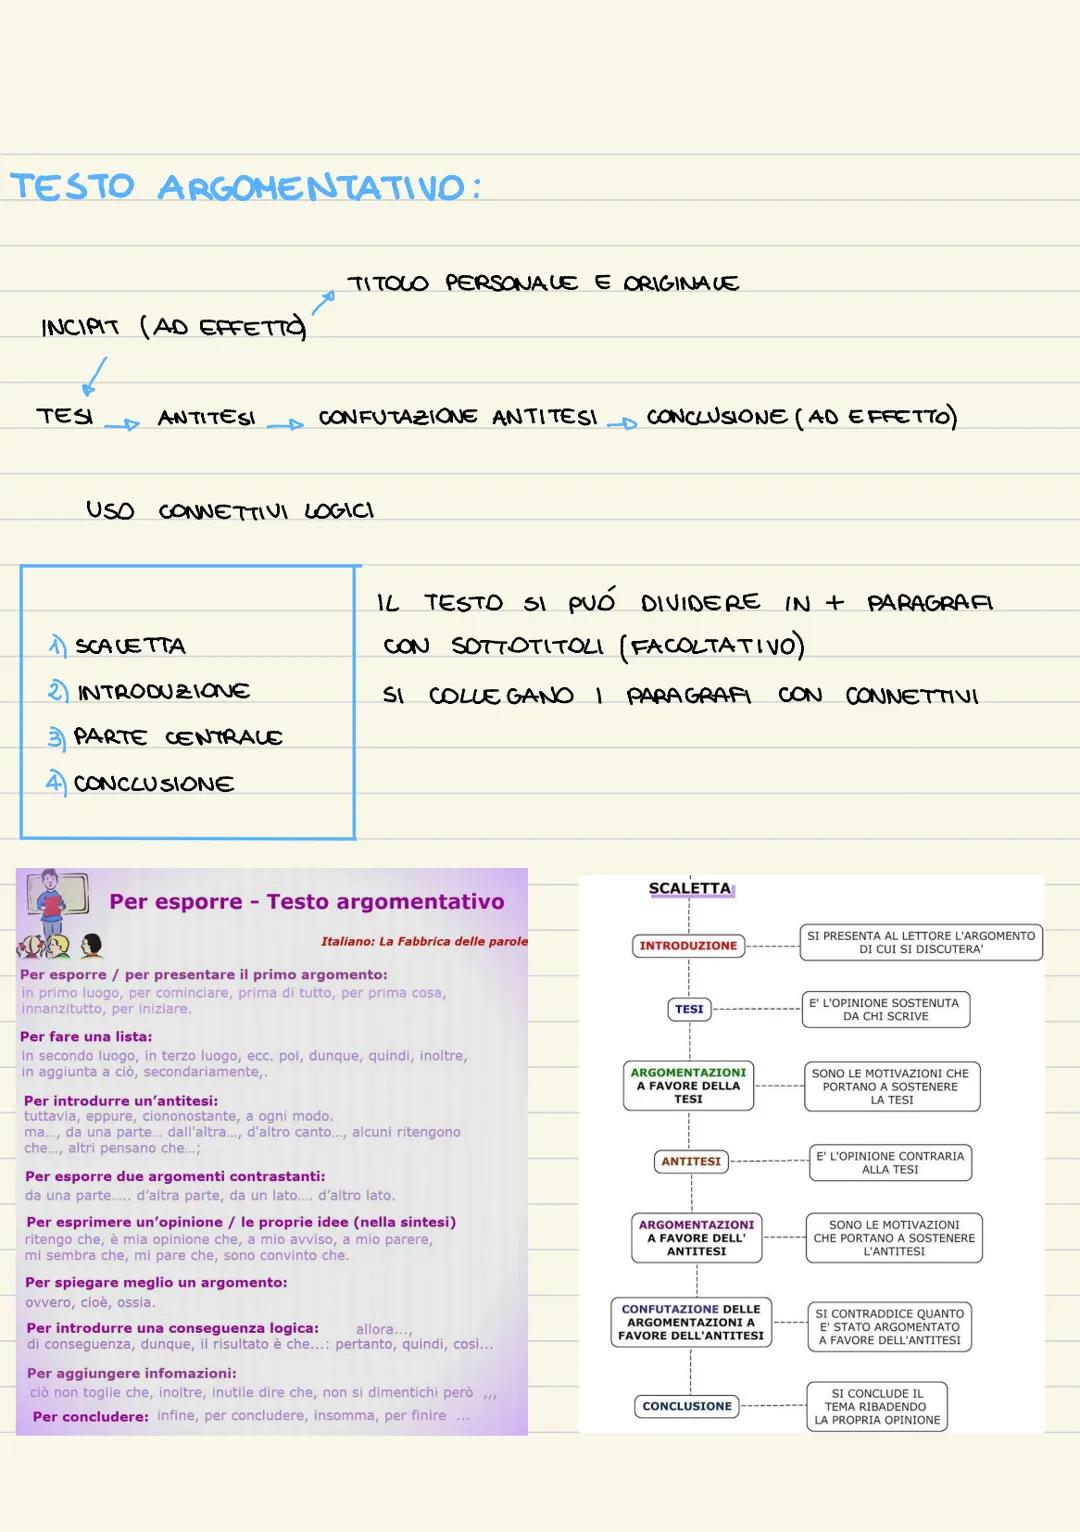 TESTO ARGOMENTATIVO:
TITOLO PERSONALE E ORIGINALE
INCIPIT (AD EFFETTO)
TESI ANTITESI CONFUTAZIONE ANTITESI CONCLUSIONE (AD EFFETTO)
USO CONNETTIVI LOGICI
1) SCALETTA
2) INTRODUZIONE
3) PARTE CENTRALE
4) CONCLUSIONE
IL TESTO SI PUÓ DIVIDERE IN + PARAGRAFI
CON SOTTOTITOLI (FACOLTATIVO)
SI COLLEGANO I PARAGRAFI CON CONNETTIVI
Per esporre - Testo argomentativo
Italiano: La Fabbrica delle parole
Per esporre / per presentare il primo argomento:
in primo luogo, per cominciare, prima di tutto, per prima cosa,
innanzitutto, per iniziare.
Per fare una lista:
in secondo luogo, in terzo luogo, ecc. poi, dunque, quindi, inoltre,
in aggiunta a ciò, secondariamente,.
Per introdurre un'antitesi:
tuttavia, eppure, ciononostante, a ogni modo.
ma..., da una parte... dall'altra..., d'altro canto..., alcuni ritengono
che..., altri pensano che...;
Per esporre due argomenti contrastanti:
da una parte..... d'altra parte, da un lato.... d'altro lato.
Per esprimere un'opinione / le proprie idee (nella sintesi)
ritengo che, è mia opinione che, a mio avviso, a mio parere,
mi sembra che, mi pare che, sono convinto che.
Per spiegare meglio un argomento:
ovvero, cioè, ossia.
Per introdurre una conseguenza logica: allora...,
di conseguenza, dunque, il risultato è che...: pertanto, quindi, così...
Per aggiungere infomazioni:
ciò non toglie che, inoltre, inutile dire che, non si dimentichi però ,,,
Per concludere: infine, per concludere, insomma, per finire ...
SCALETTA
INTRODUZIONE
SI PRESENTA AL LETTORE L'ARGOMENTO
DI CUI SI DISCUTERA'
TESI
E' L'OPINIONE SOSTENUTA
DA CHI SCRIVE
ARGOMENTAZIONI
A FAVORE DELLA
TESI
SONO LE MOTIVAZIONI CHE
PORTANO A SOSTENERE
LA TESI
ANTITESI
E' L'OPINIONE CONTRARIA
ALLA TESI
ARGOMENTAZIONI
A FAVORE DELL'
ANTITESI
SONO LE MOTIVAZIONI
CHE PORTANO A SOSTENERE
L'ANTITESI
CONFUTAZIONE DELLE
ARGOMENTAZIONI A
FAVORE DELL'ANTITESI
SI CONTRADDICE QUANTO
E' STATO ARGOMENTATO
A FAVORE DELL'ANTITESI
CONCLUSIONE
SI CONCLUDE IL
TEMA RIBADENDO
LA PROPRIA OPINIONE